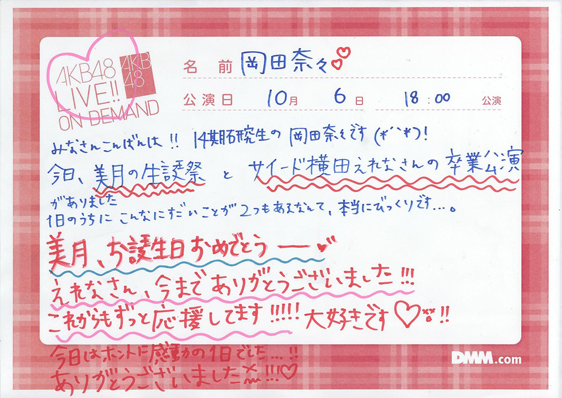 AKB48
LIVE!!
ON DEMAND
AKB
48
名 前 岡田奈々
公演日 10月 6日 18:00 公演
みなさんこんばんは!! 14期研究生の 岡田奈々です(*^^*)!
今日、美月の生誕祭 と サイード横田えれなさんの 卒業公演
がありました
1日のうちに こんなにすごいことが 2つもあるなんて、本当にびっくりです…。
美月、お誕生日おめでとうー
えれなさん、今までありがとうございました!!!
これからもずっと応援してます!!!!! 大好きです♡!!
今日はホントに感動の1日でした…!!
ありがとうございました!!!♡
DMM.com